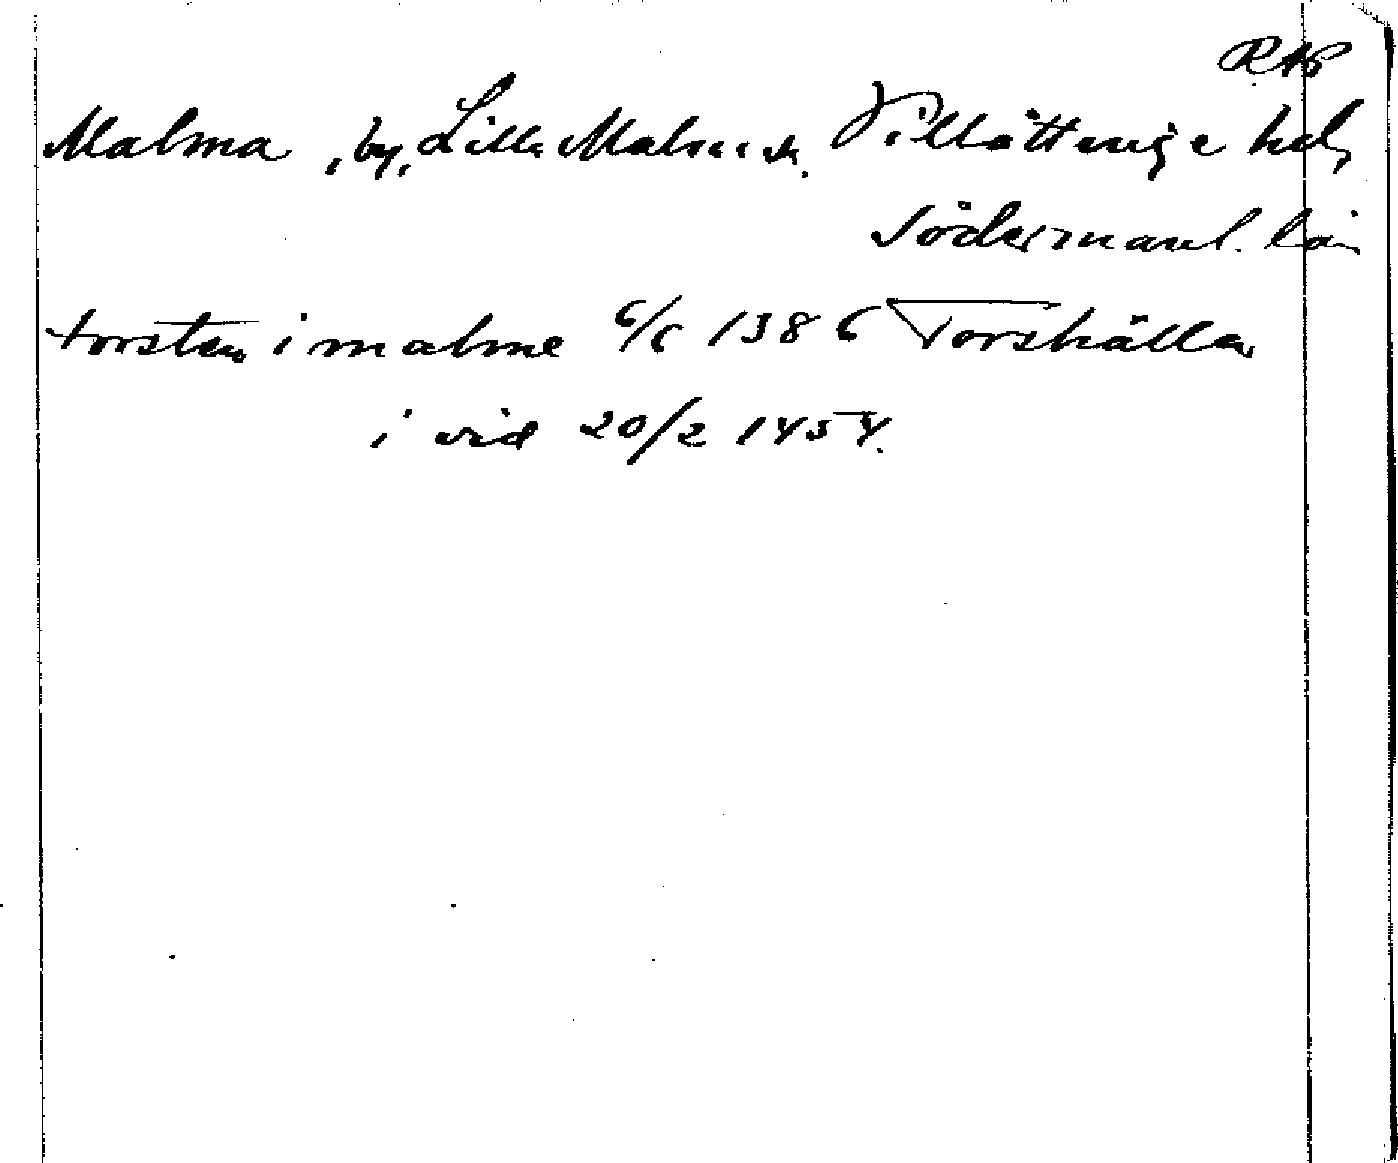 RAP
Malma, by, Lilla Malma sn. Villåttinge hd,
Södermanl. län
torsten i malme 6/6 1386 Torshälla
i vid 20/2 1454.